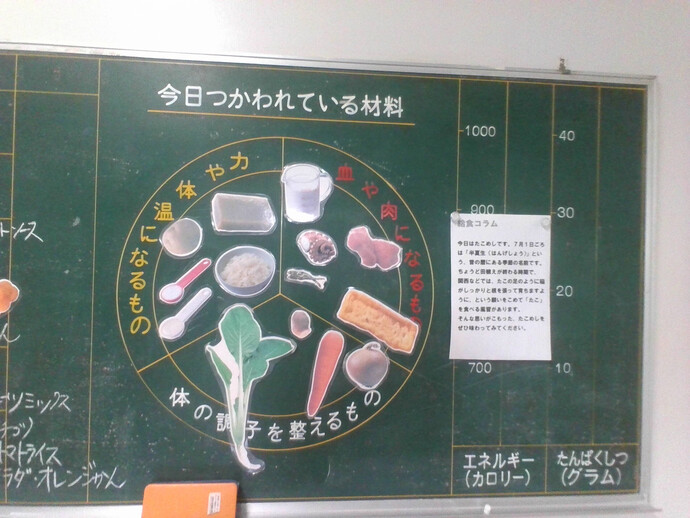 今日つかわれている材料
体や力
温になるもの
血や肉になるもの
体の調子を整えるもの
1000
900
700
40
30
20
10
エネルギー
(カロリー)
たんぱくしつ
(グラム)
給食コラム
今日はたこめしです。7月1日ごろ
は「半夏生（はんげしょう）」とい
う、昔の暦にある季節の名前です。
ちょうど田植えが終わる時期で、
関西などでは、たこの足のように稲
がしっかりと根を張って育ちますよう
に、という願いをこめて「たこ」
を食べる風習があります。
そんな思いがこもった、たこめしを
ぜひ味わってみてください。
ミックス
トマトライス
ラダ・オレンジかん